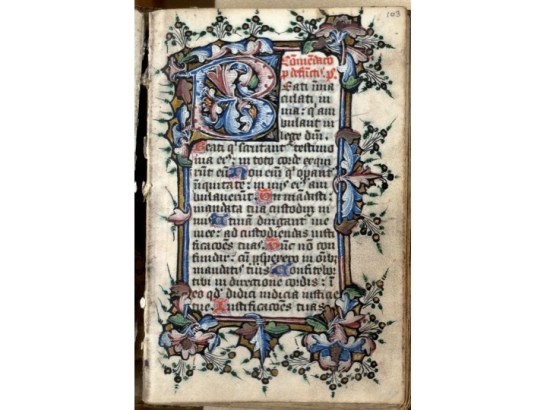 103
Cōmēdacō
p defūctꝭ. pͨ.
Beati īma
culati in
via: q̇ am
bulant in
lege dnī.
Beati q̇ scrutant̉ testimo
nia eꝰ: in toto corde exqui
runt eū. Non eniȝ q̇ opant̉
iniquitatē: in vijs eꝰ am
bulauerūt. Tu mādasti:
mandata tua custodiri ni
mis. Utinā dirigant̉ uie
mee: ad custodiendas iusti
ficacōes tuas. Tūc non con
fundar: cū ꝑspexero in oīb;
mandatꝭ tuis. Confitebor
tibi in directione cordis: ī
eo qd̄ didici iudicia iusticie
tue. Iustificacōes tuas